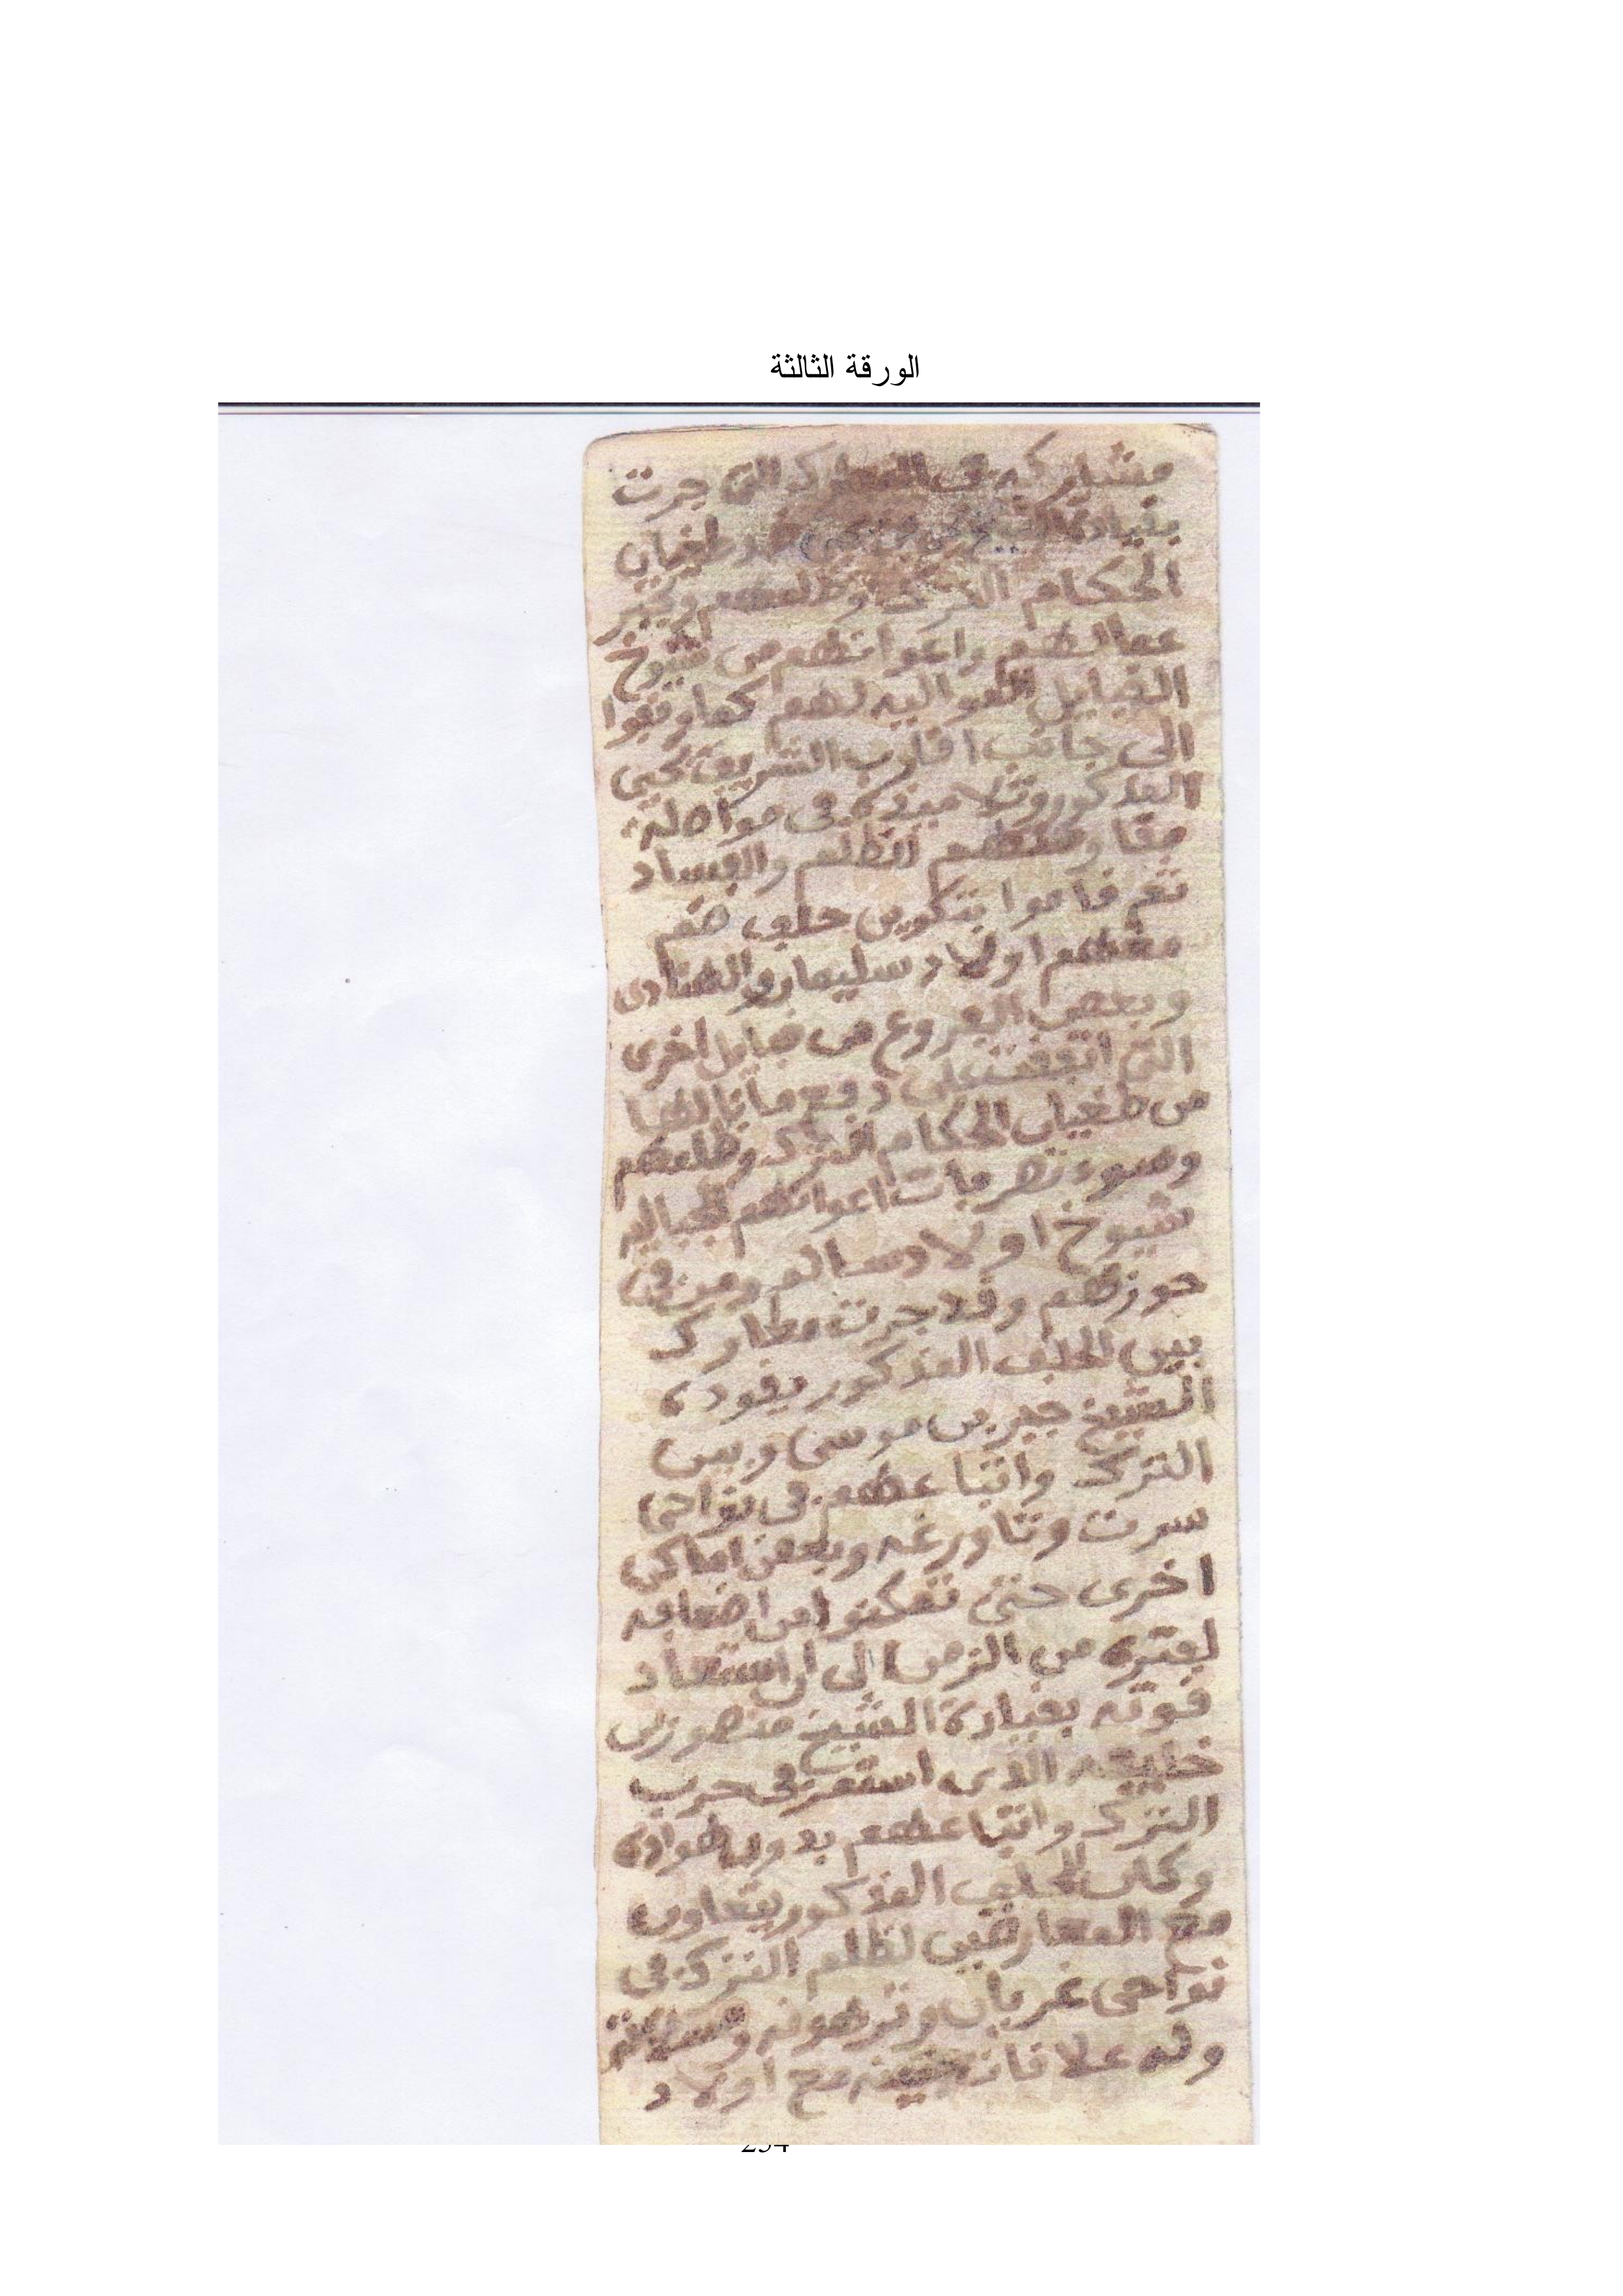 الورقة الثالثة
مشاركه في المعارك التي جرت
بقيادة الشيخ ضد طغيان
الحكام الترك وظلمهم وكبر
عمالهم واعوانهم من شيوخ
القبايل المواليه لهم كما وقفوا
الى جانب اقارب الشريف يحيى
المذكور وتلاميذه في مواصلة
مقاومتهم الظلم والفساد
ثم قاموا بتكوين حلف ضم
معظم اولاد سليمان والهنادى
وبعض الفروع من قبايل اخرى
التي اتفقت على دفع ما نالها
من طغيان الحكام الترك وظلمهم
وسوء تصرفات اعوانهم الجباليه
شيوخ اولاد سالم ومن في
حوزتهم وقد جرت معارك
بين الحلف المذكور يقوده
الشيخ جبر بن موسى وبين
الترك واتباعهم في نواحي
سرت وتاورغه وبعض اماكن
اخرى حتى تمكنوا من اضعافه
لفتره من الزمن الى ان استعاد
قوته بقيادة الشيخ منصور بن
خليفه الذي استمر في حرب
الترك واتباعهم بدون هواده
وكان الحلف المذكور يتعاون
مع المعارضين لظلم الترك في
نواحي غريان وترهونه ومسلاتة
وله علاقات مع اولاد
234